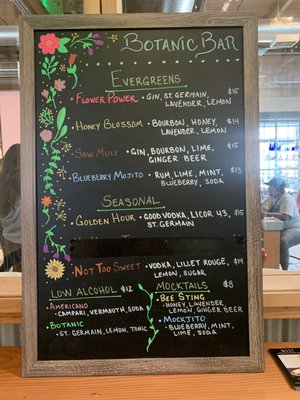 BOTANIC BAR
EVERGREENS
FLOWER POWER • GIN, ST. GERMAIN, $15
LAVENDER, LEMON
HONEY BLOSSOM • BOURBON, HONEY, $14
LAVENDER, LEMON
SAW MULE • GIN, BOURBON, LIME, $15
GINGER BEER
BLUEBERRY MOJITO • RUM, LIME, MINT, $13
BLUEBERRY, SODA
SEASONAL
GOLDEN HOUR • GOOD VODKA, LICOR 43, $15
ST. GERMAIN
NOT TOO SWEET • VODKA, LILLET ROUGE, $14
LEMON, SUGAR
LOW ALCOHOL $12
AMERICANO
• CAMPARI, VERMOUTH, SODA
BOTANIC
• ST. GERMAIN, LEMON, TONIC
MOCKTAILS $8
BEE STING
• HONEY, LAVENDER,
LEMON, GINGER BEER
• MOCKJITO
BLUEBERRY, MINT,
LIME, SODA